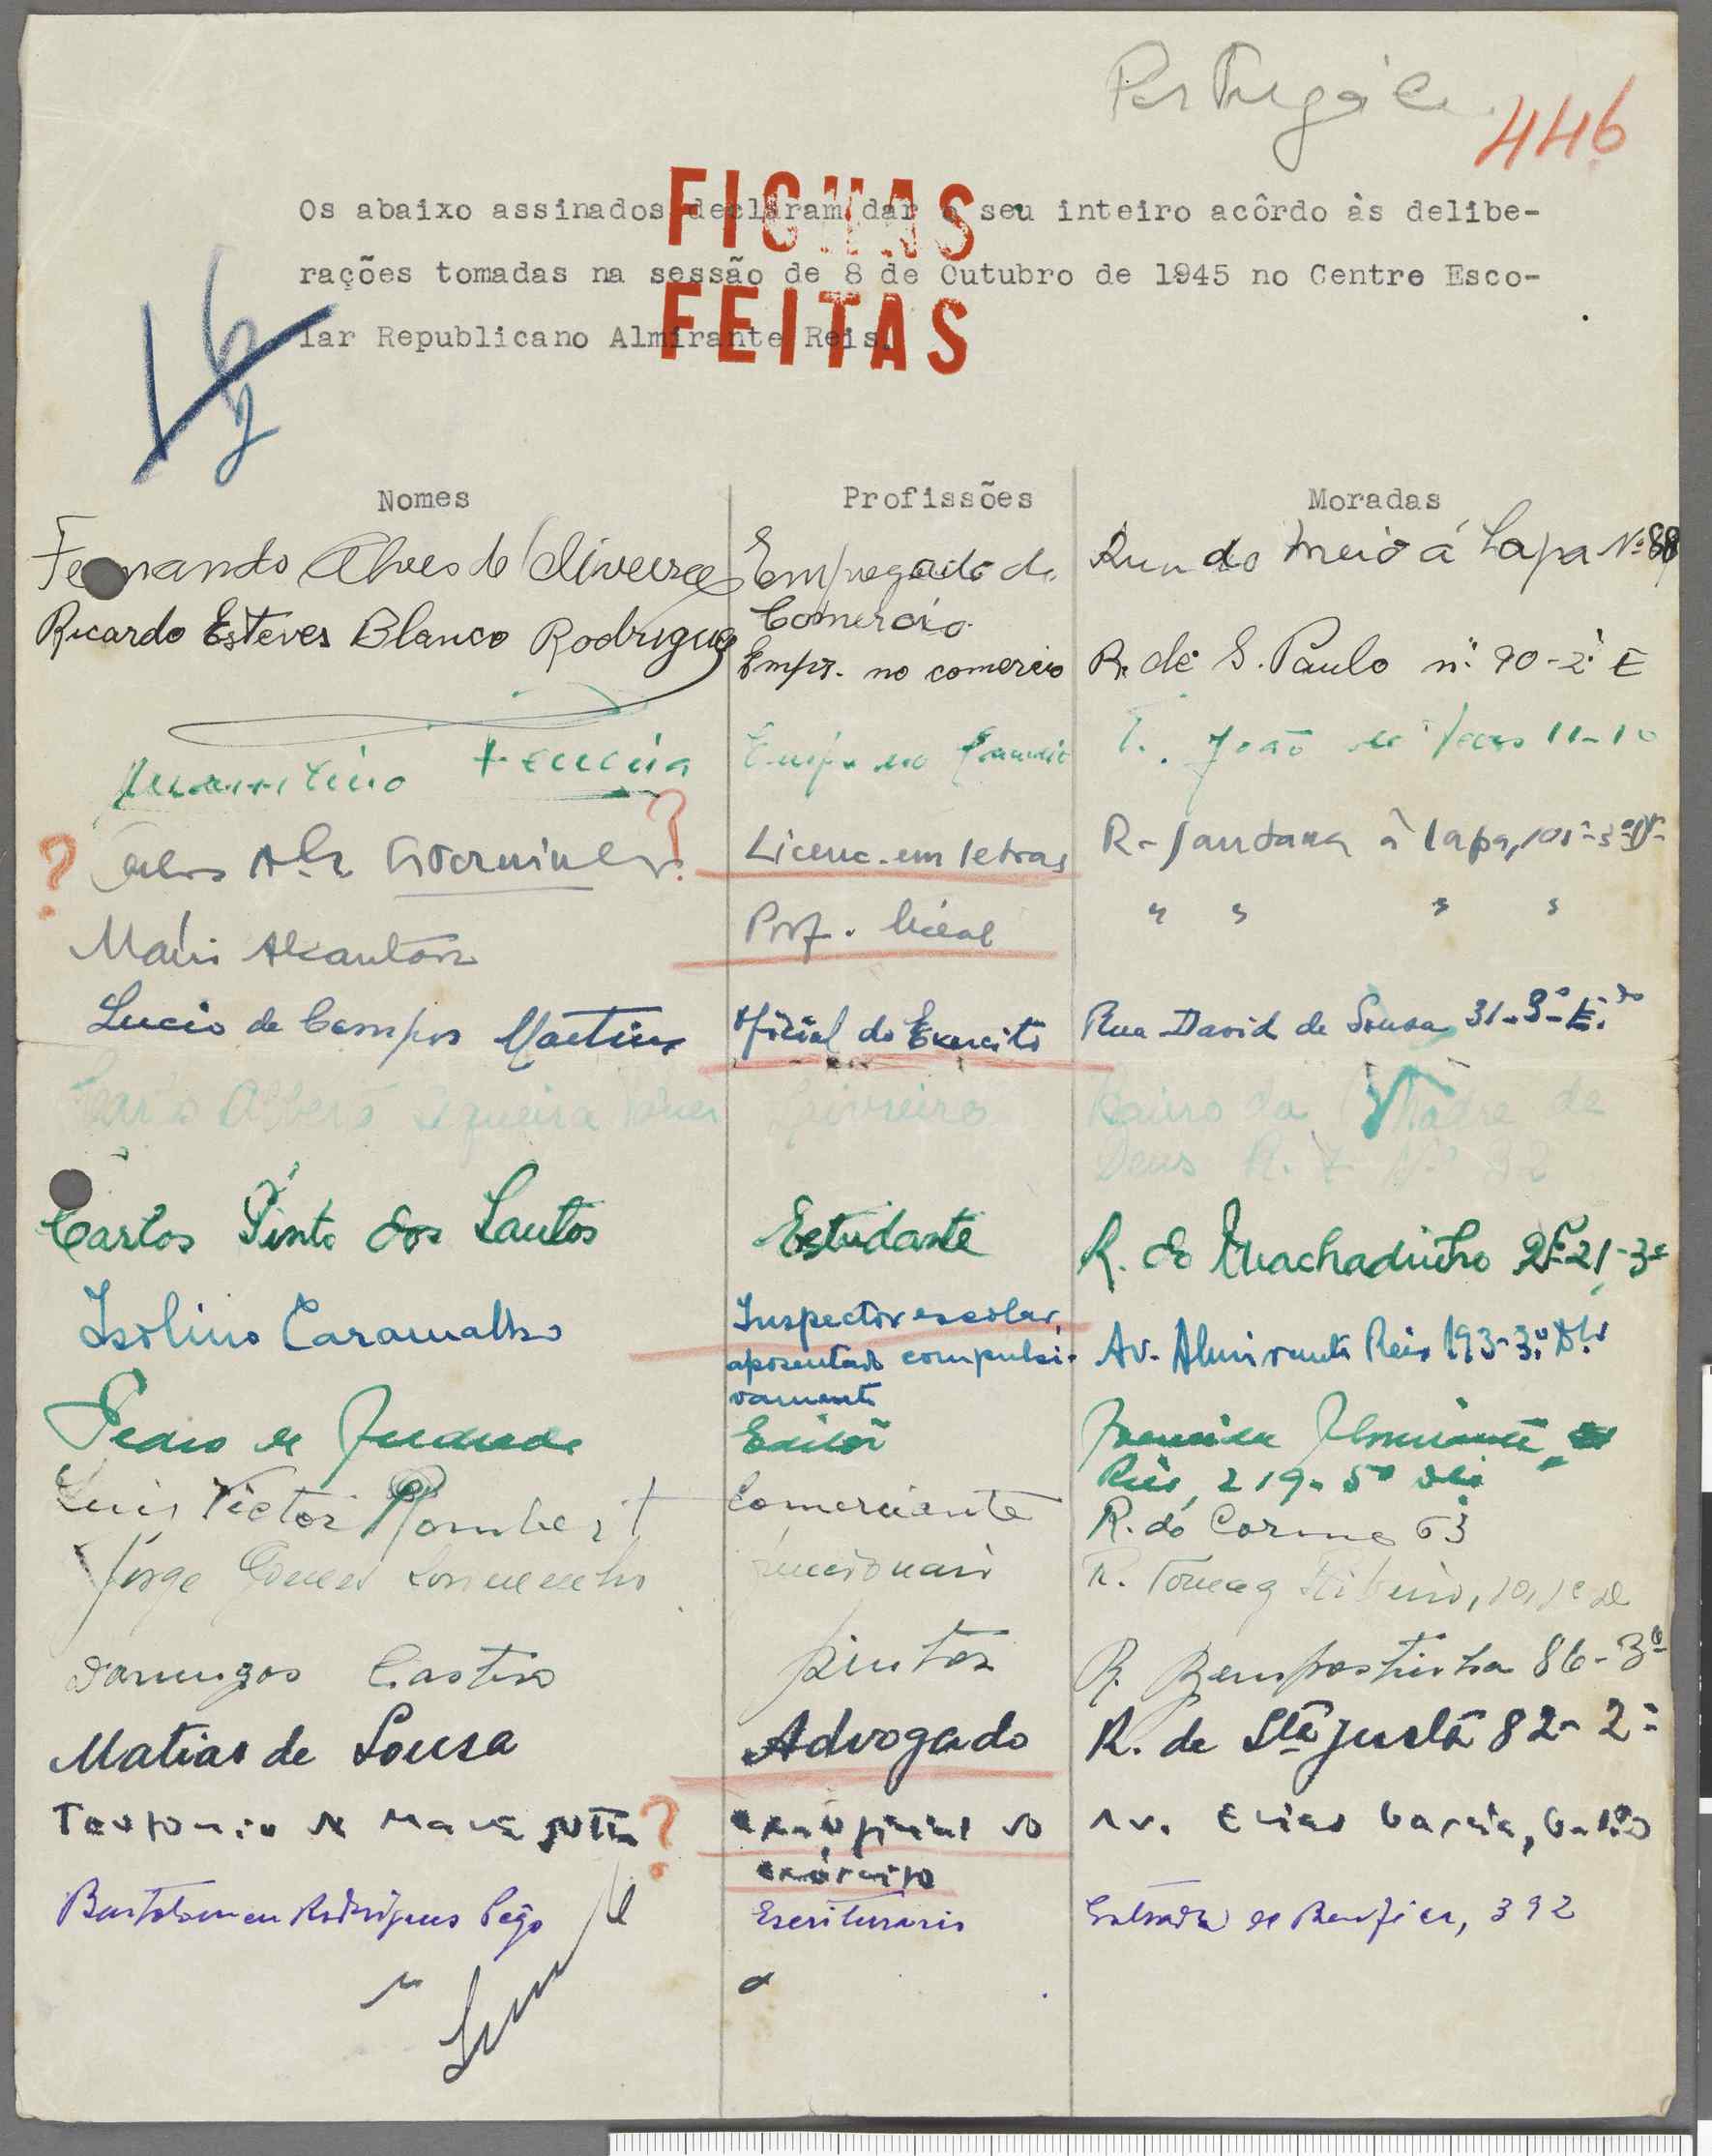 446
FICHAS
FEITAS
Os abaixo assinados declaram dar o seu inteiro acôrdo às delibe-
rações tomadas na sessão de 8 de Outubro de 1945 no Centro Esco-
lar Republicano Almirante Reis.
Nomes Profissões Moradas
Fernando Alves de Oliveira Empregado do Comercio Rua do Meio á Lapa Nº 88
Ricardo Esteves Blanco Rodrigues Empr. no comercio R. de S. Paulo nº 90-2º E
T. João de 11-1º
? ? Licenc. em letras R. Santana à Lapa, 101-3º
Mário Alcantara Prof. liceal " " " "
Lucio de Campos Martins Oficial do Exercito Rua David de Sousa 31-3º E.do
Carlos Alberto Siqueira Livreiro Bairro da Madre de
Deus R. 7 Nº 32
Carlos Pinto dos Santos Estudante R. do Machadinho 21-3º
Isolino Caramalho Inspector escolar, Av. Almirante Reis 193-3º Dto
aposentado compulsi-
vamente
Pedro de Andrade Editor Avenida Almirante
Reis, 219-5º Dto
Luis Victor Rombert Comerciante R. do Carmo 63
Jorge Gomes funcionario R. Tomaz Ribeiro, 10, 1º D
Domingos Castro pintor R. Bempostinha 86-3º
Matias de Sousa Advogado R. de Sta Justa 82-2º
? ex-oficial do Av. Elias Garcia,
exército
Bartolomeu Rodrigues Pego Escriturario Estrada de Benfica, 392